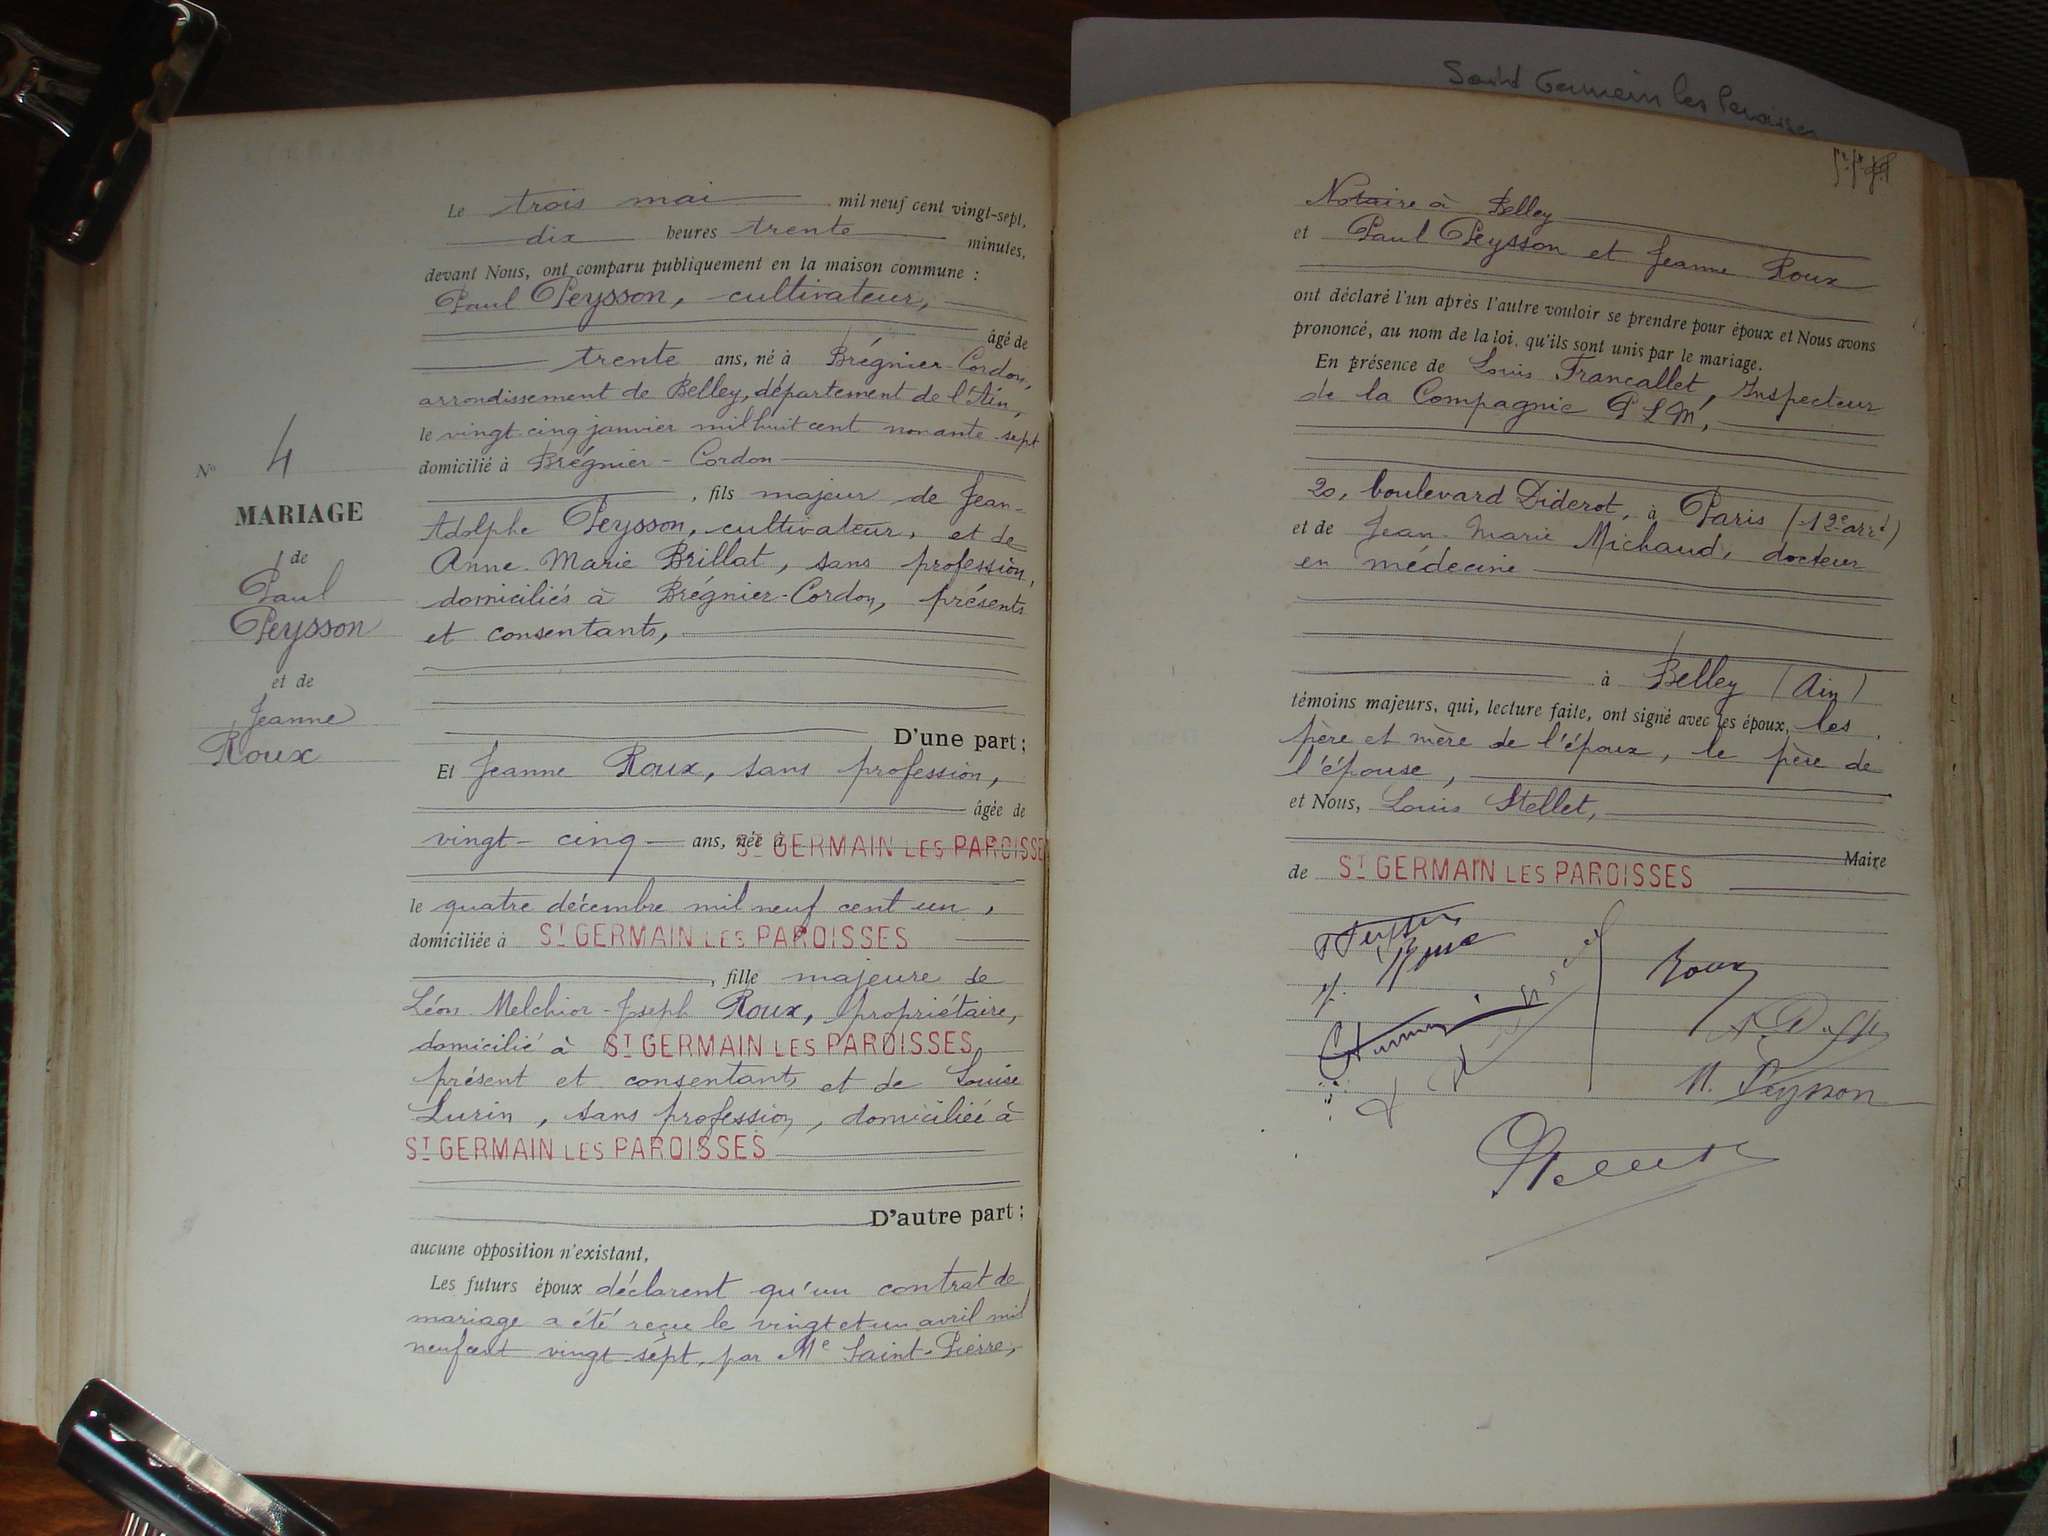 Saint Germain les Paroisses
Le trois mai mil neuf cent vingt-sept,
dix heures trente minutes,
devant Nous, ont comparu publiquement en la maison commune :
Paul Peysson, cultivateur,
âgé de
trente ans, né à Brégnier-Cordon,
arrondissement de Belley, département de l'Ain,
le vingt cinq janvier mil huit cent nonante-sept
domicilié à Brégnier-Cordon
, fils majeur de Jean-
Adolphe Peysson, cultivateur, et de
Anne-Marie Brillat, sans profession,
domiciliés à Brégnier-Cordon, présents
et consentants,
D'une part ;
Et Jeanne Roux, sans profession,
âgée de
vingt-cinq ans, née à ST GERMAIN LES PAROISSES
le quatre décembre mil neuf cent un,
domiciliée à ST GERMAIN LES PAROISSES
, fille majeure de
Léon-Melchior-Joseph Roux, propriétaire,
domicilié à ST GERMAIN LES PAROISSES
présent et consentant, et de Louise
Lurin, sans profession, domiciliée à
ST GERMAIN LES PAROISSES
D'autre part ;
aucune opposition n'existant,
Les futurs époux déclarent qu'un contrat de
mariage a été reçu le vingt et un avril mil
neuf cent vingt-sept, par Me Saint-Pierre,
No 4
MARIAGE
de
Paul
Peysson
et de
Jeanne
Roux
Notaire à Belley
et Paul Peysson et Jeanne Roux
ont déclaré l'un après l'autre vouloir se prendre pour époux et Nous avons
prononcé, au nom de la loi, qu'ils sont unis par le mariage.
En présence de Louis Francallet, Inspecteur
de la Compagnie P L M,
20, boulevard Diderot, à Paris (12e arrt)
et de Jean-Marie Michaud, docteur
en médecine
à Belley (Ain)
témoins majeurs, qui, lecture faite, ont signé avec les époux, les
père et mère de l'époux, le père de
l'épouse,
et Nous, Louis Stellet,
Maire
de ST GERMAIN LES PAROISSES
Roux
M. Peysson